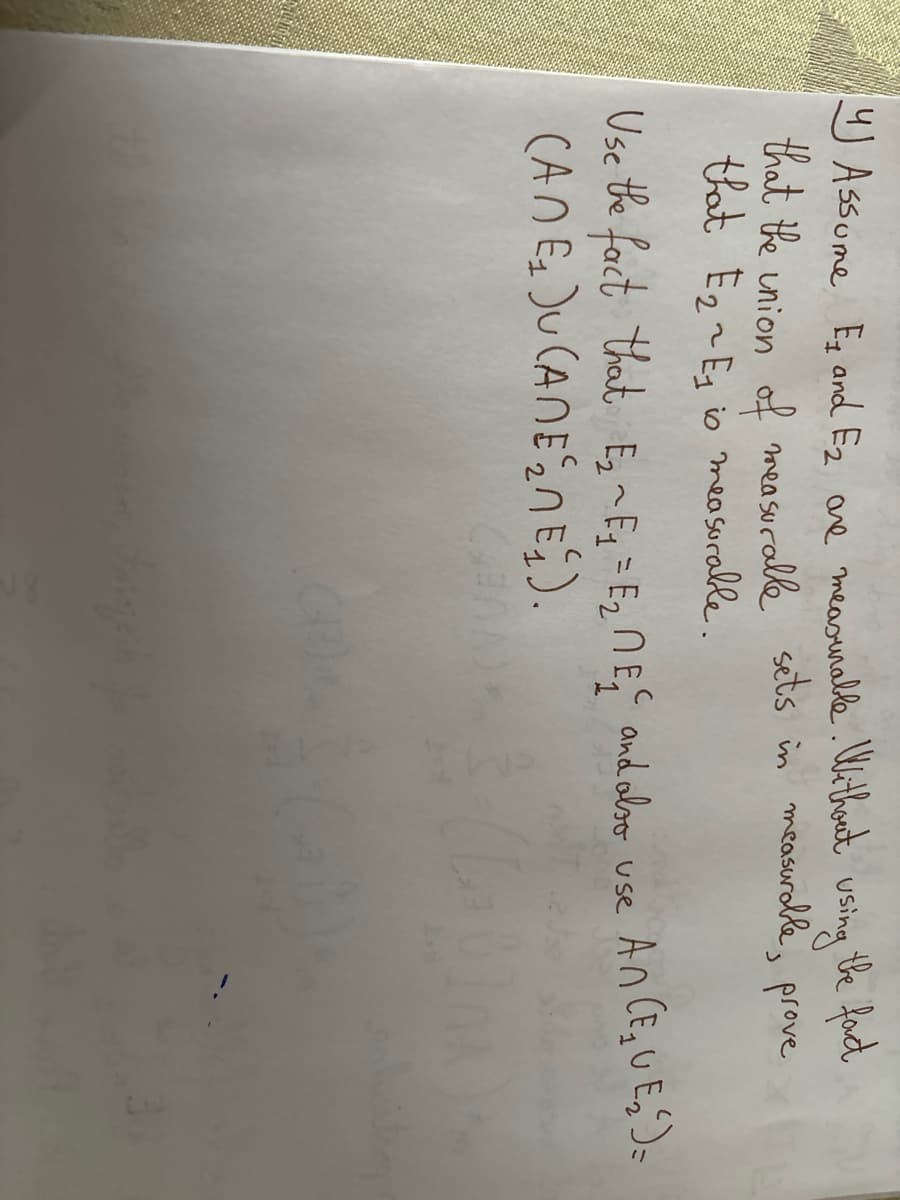 4) Assume E₁ and E₂ are measurable. Without using the fact
that the union of measurable sets in measurable, prove
that E₂ ~ E₁ is measurable.
Use the fact that E₂ ~ E₁ = E₂ ∩ E₁ᶜ and also use A ∩ (E₁ ∪ E₂ᶜ) =
(A ∩ E₁) ∪ (A ∩ E₂ᶜ ∩ E₁ᶜ).